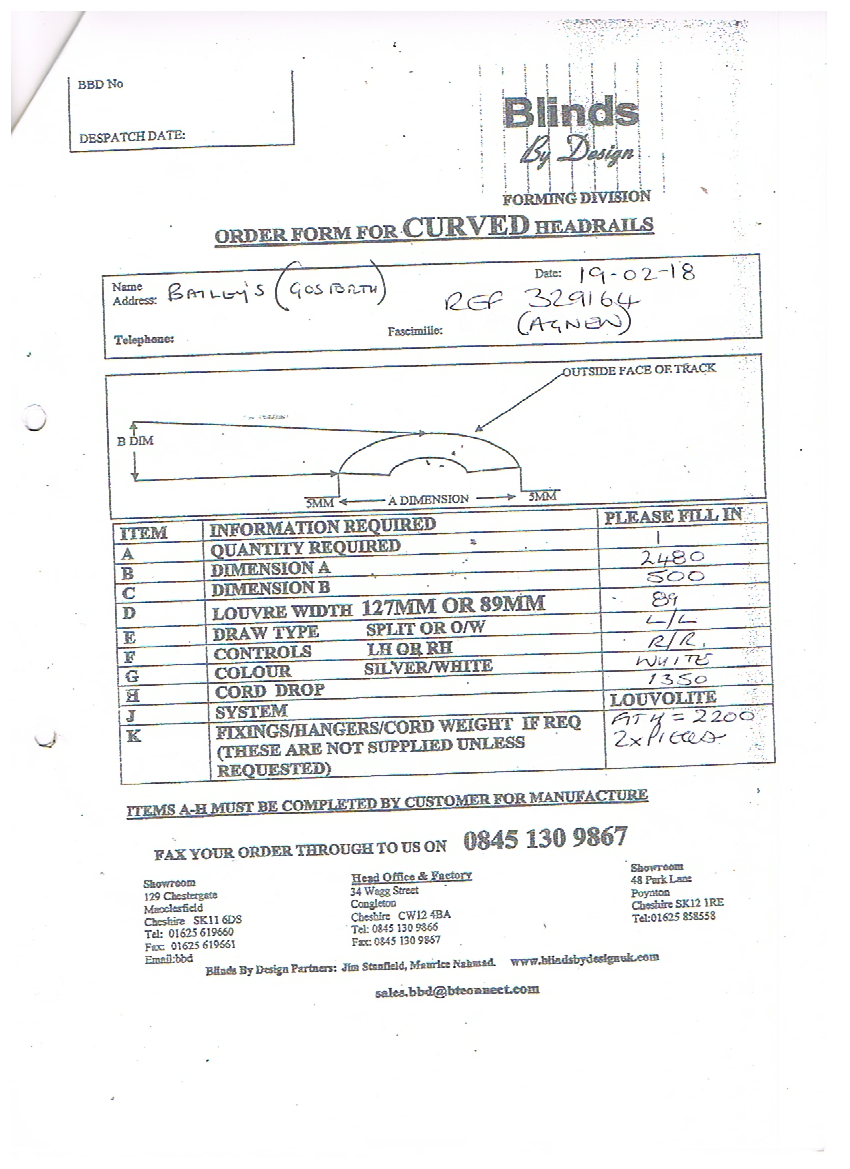 BBD No
DESPATCH DATE:
Blinds
By Design
FORMING DIVISION
ORDER FORM FOR CURVED HEADRAILS
Name
Address: BAILEY'S (GOSFORTH)
Date: 19-02-18
REF 329164
(AGNEW)
Telephone:
Fascimilie:
OUTSIDE FACE OF TRACK
B DIM
5MM
A DIMENSION
5MM
ITEM INFORMATION REQUIRED PLEASE FILL IN
A QUANTITY REQUIRED 1
B DIMENSION A 2480
C DIMENSION B 500
D LOUVRE WIDTH 127MM OR 89MM 89
E DRAW TYPE SPLIT OR O/W L/L
F CONTROLS LH OR RH R/R.
G COLOUR SILVER/WHITE WHITE
H CORD DROP 1350
J SYSTEM LOUVOLITE
K FIXINGS/HANGERS/CORD WEIGHT IF REQ = 2200
(THESE ARE NOT SUPPLIED UNLESS 2x PIECES
REQUESTED)
ITEMS A-H MUST BE COMPLETED BY CUSTOMER FOR MANUFACTURE
FAX YOUR ORDER THROUGH TO US ON 0845 130 9867
Showroom
129 Chestergate
Macclesfield
Cheshire SK11 6DS
Tel: 01625 619660
Fax: 01625 619661
Email:bbd
Head Office & Factory
34 Wagg Street
Congleton
Cheshire CW12 4BA
Tel: 0845 130 9866
Fax: 0845 130 9867
Showroom
48 Park Lane
Poynton
Cheshire SK12 1RE
Tel:01625 858558
Blinds By Design Partners: Jim Stanfield, Maurice Nahmad. www.blindsbydesignuk.com
sales.bbd@btconnect.com